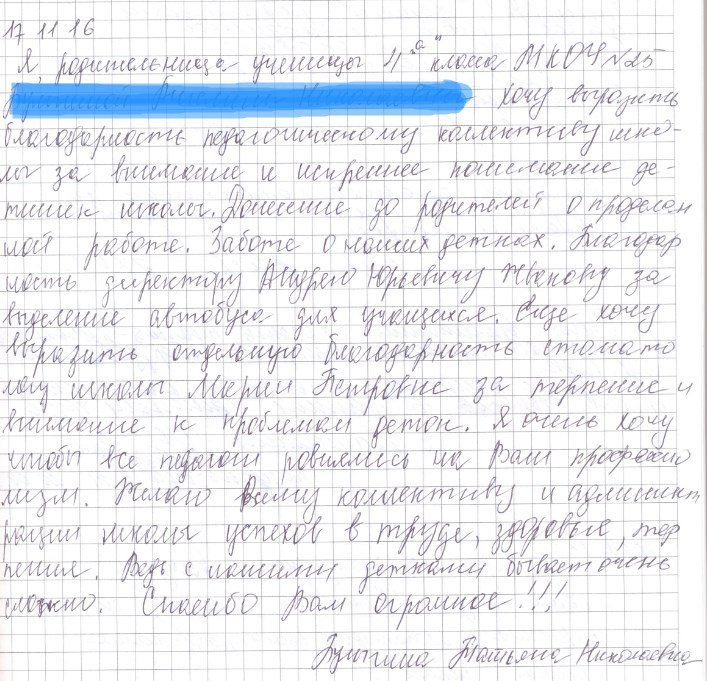 17 11 16
Я, родительница ученицы 4 "а" класса МКОУ №25
хочу выразить
благодарность педагогическому коллективу шко-
лы за внимание и искреннее понимание де-
тишек школы. Донесение до родителей о проделан
ной работе. Заботе о наших детках. Благодар
ность директору Андрею Юрьевичу за
выделение автобуса для учащихся. Еще хочу
выразить отдельную благодарность стомато
логу школы Марии Петровне за терпение и
внимание к проблемам деток. Я очень хочу
чтобы все педагоги ровнялись на Ваш професио
лизм. Желаю Всему коллективу и админист
рации школы успехов в труде, здоровье, тер
пение. Ведь с нашими детками бывает очень
сложно. Спасибо Вам огромное!!!
Татьяна Николаевна